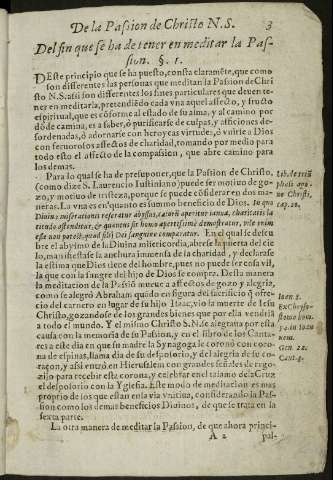 De la Passion de Christo N.S. 3
Del fin que se ha de tener en meditar la Pas-
sion. §. 1.
DEste principio que se ha puesto, consta claramẽte, que como
son differentes las personas que meditan la Passion de Chri
sto N.S. assi son differentes los fines particulares que deuen te-
ner en meditarla, pretendiẽdo cada vna aquel affecto, y fructo
espiritual, que es cõforme al estado de su alma, y al camino por
dõ de camina, es a saber, ò purificarse de culpas, y afficiones de-
sordenadas, ò adornarse con heroycas virtudes, ò vnirse a Dios
con feruorosos affectos de charidad, tomando por medio para
todo esto el affecto de la compassion, que abre camino para
los demas.
Para lo qual se ha de presuponer, que la Passion de Christo,
(como dize S. Laurencio Iustiniano) puede ser motiuo de go-
zo, y motiuo de tristeza, porque se puede cõsiderar en dos ma-
neras. La vna es en quanto es summo beneficio de Dios. In quo
Diuinæ miserationis reseratur abyssus, cælorũ aperitur ianua, charitatis la
titudo ostenditur, & quantus sit homo apertissimè demonstratur,
este non potest, quod filij Dei sanguine comparatur. En el qual se descu
bre el abysmo de la Diuina misericordia, abrese la puerta del cie
lo, manifiestase la anchura inmensa de la charidad, y declarase
la estima que Dios tiene del hombre, pues no puede ser cosa vil,
la que con la sangre del hijo de Dios se compra. Desta manera
la meditacion de la Passiõ mueue a affectos de gozo y alegria,
como se alegrò Abraham quãdo en figura del sacrificio q̃ ofre-
cio del carnero en lugar de su hijo Isaac, vio la muerte de Iesu
Christo, gozandose de los grandes bienes que por ella vendriã
a todo el mundo. Y el mismo Christo S.N. se alegraua por esta
causa con la memoria de su Passion, y en el libro de los Canta-
res a este dia en que su madre la Synagoga le coronò con coro-
na de espinas, llama dia de su desposorio, y del alegria de su co-
raçon, y assi entrò en Hierusalem con grandes señales de rego-
zijo para recebir esta corona, y celebrar en el talamo de la Cruz
el desposorio con la Yglesia. Este modo de meditacion es mas
proprio de los que estan en la via vnitiua, considerando la Pas-
sion como los demas beneficios Diuinos, de que se trata en la
sexta parte.
La otra manera de meditar la Passion, de que ahora princi-
A 2 pal-
Lib. de triũ
phali ago-
ne Christi,
cap. 20.
Ioan. 8.
Gen. 22.
Cant. 3.